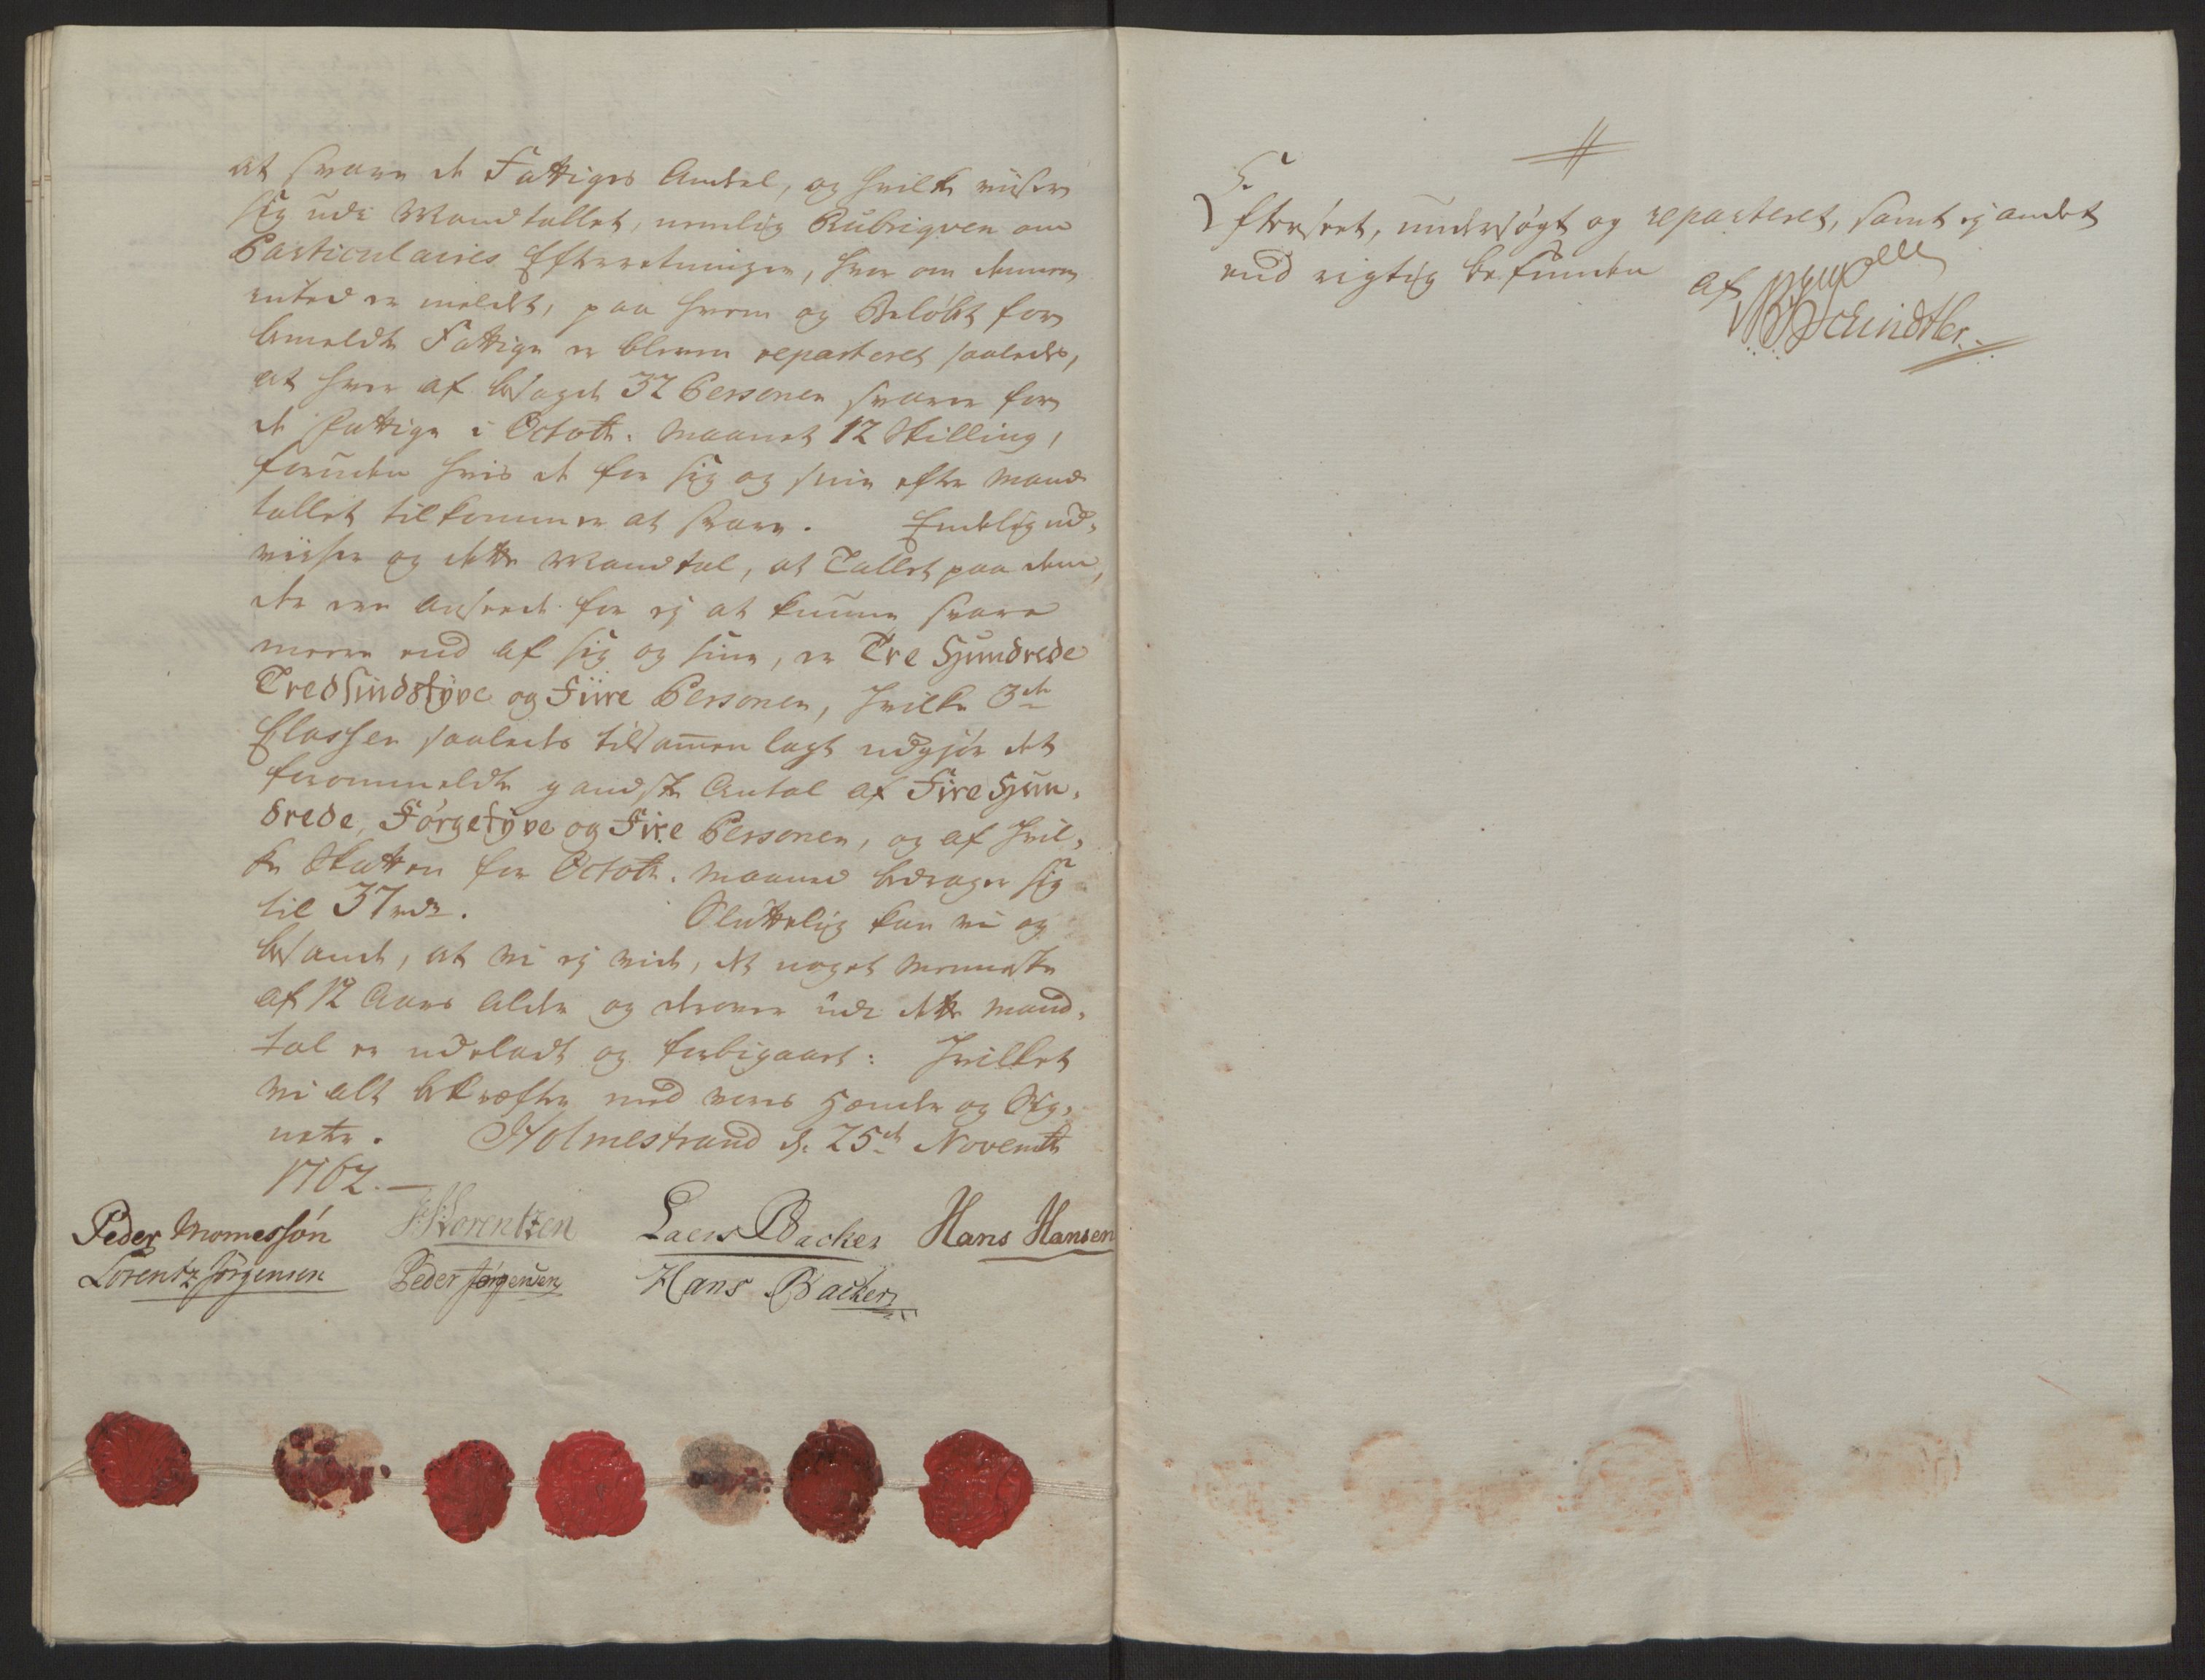 at svare de Fattiges Andel, og hvilke viiser
sig udi Mandtallet, nemlig Rubriqven om
Particulaires Efterretninger, hvor om dennem
intet er meldt, paa hvem og Beløbet for
bemeldte Fattige er bleven reparteret saaledes,
at hver af besagde 32 Personer svarer for
de Fattige i Octobr. Maanet 12 Skilling,
foruden hvis de for sig og sine efter Mand
tallet tilkommer at svare. Endelig ud-
viiser og dette Mandtal, at Tallet paa dem,
der ere anseede for ej at kunne svare
meere end af sig og sine, er Tre Hundrede
Tredsindstyve og Fiire Personer, hvilke 3de
Classer saaledes tilsammen lagt udgjør det
forommeldte gandske Antal af Fire Hun-
drede, Førgetyve og Fire Personer, og af hvil-
ke Skatten for Octobr. Maaned bedrager sig
til 37 rdr. Sluttelig kan vi og
besande, at vi ej vide, at noget Menneske
af 12 Aars Alder og derover udi dette Mand-
tal er udeladt og forbigaaet: Hvilket
vi alt bekræfter med vores Hænder og Sig-
neter. Holmestrand d. 25de Novembr
1762.
Peder Thomessøn Lorentzen Laers Backer Hans Hansen
Lorentz Jørgensen Peder Jørgensen Hans Backer
Efterseet, undersøgt og reparteret, samt ej andet
end rigtig befunden
af
Schindtler.